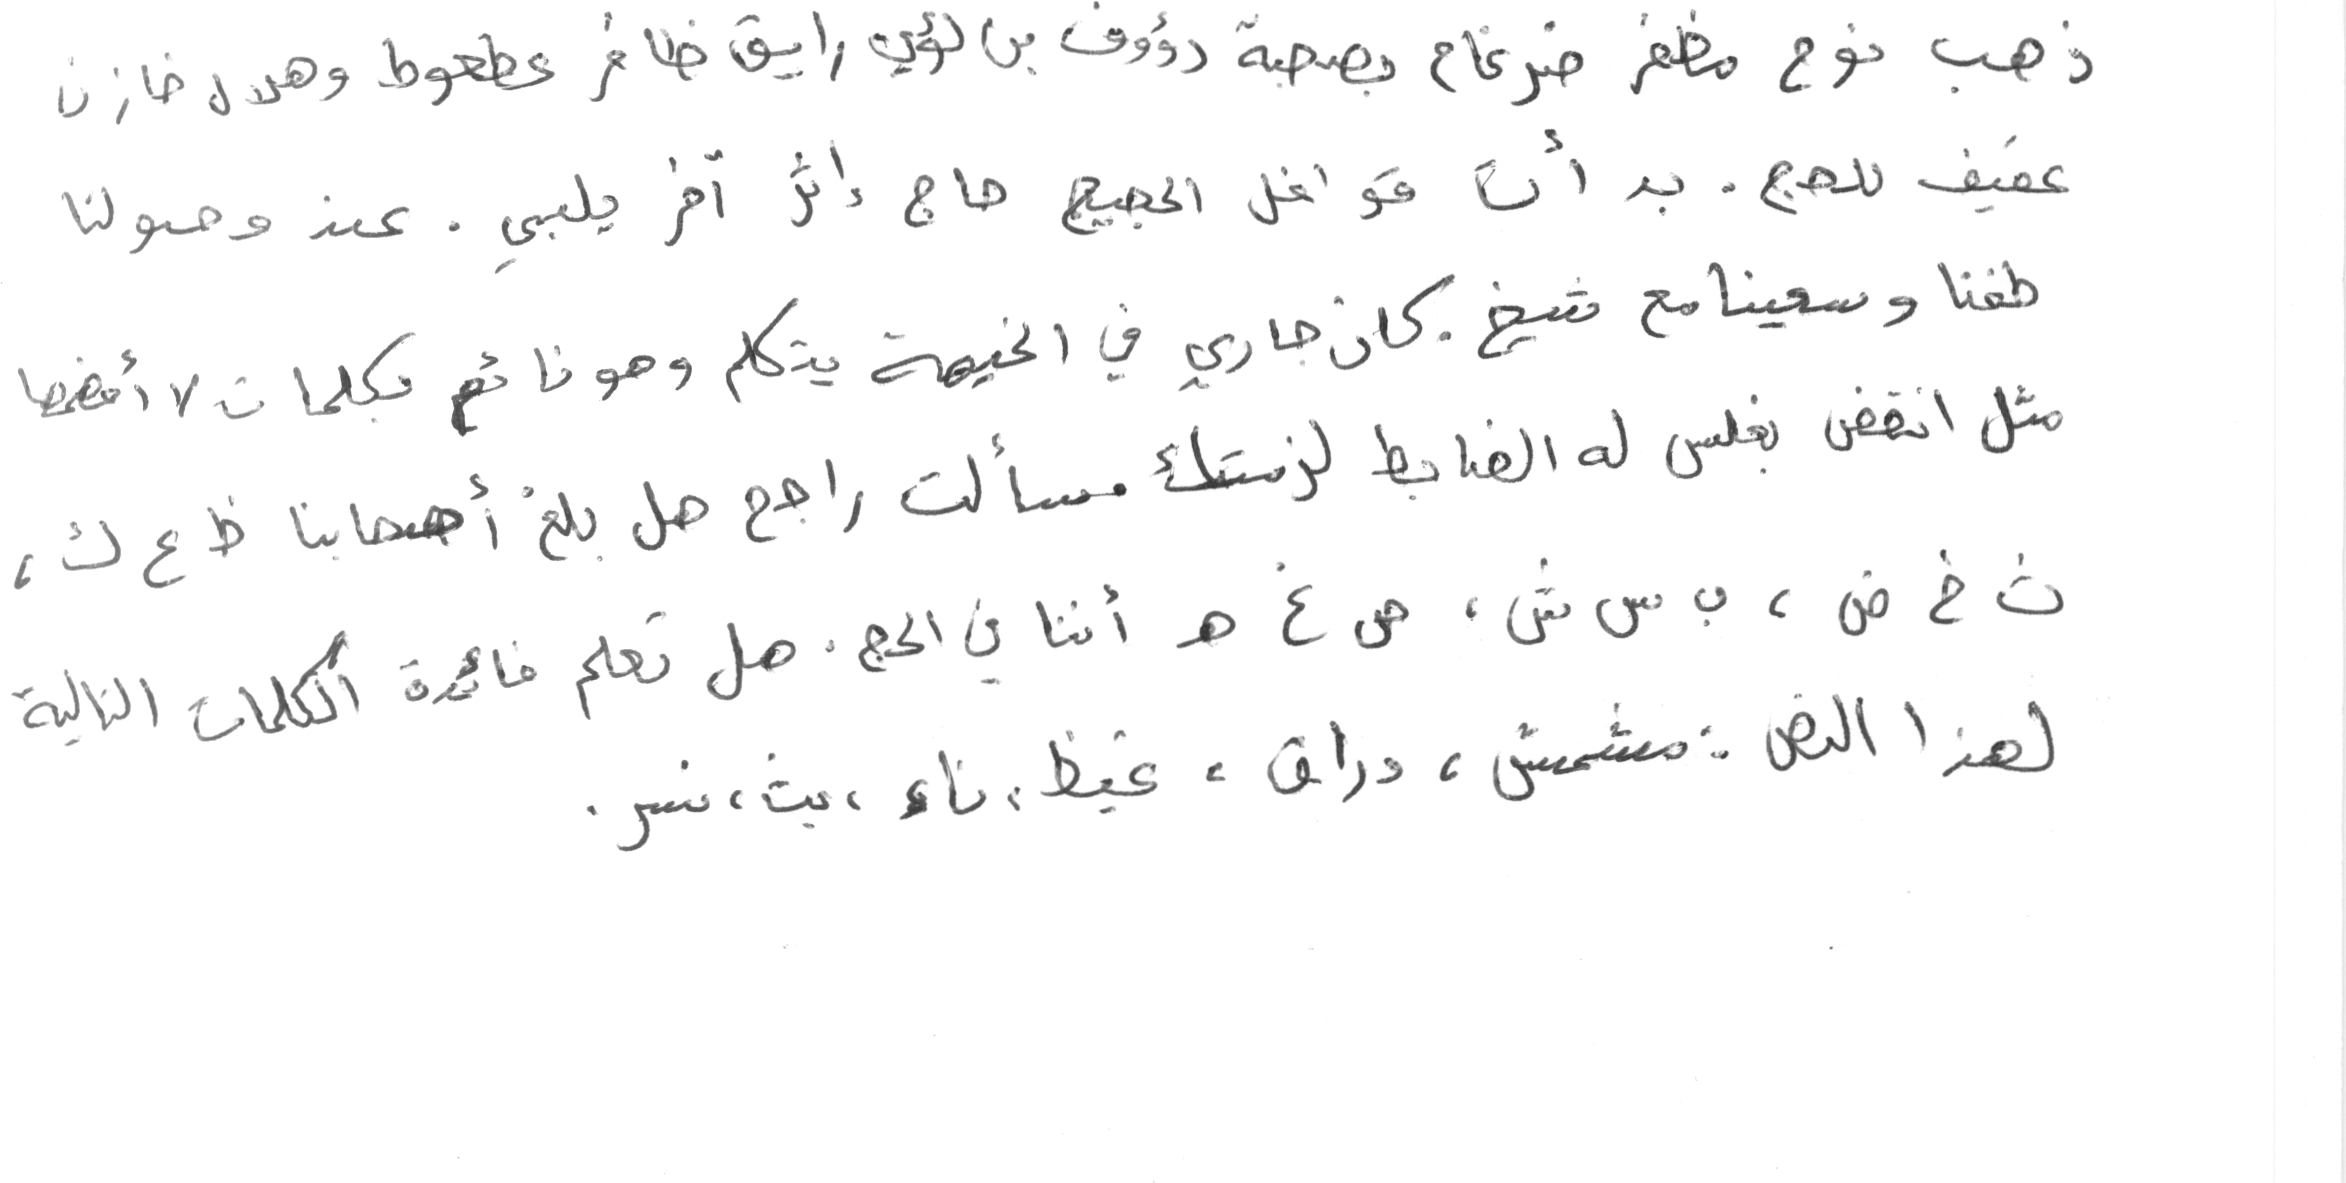 ذهب نوح مظفر ضرغام بصحبة رؤوف بن لؤي رايق ظافر عطعوط وهلال خازن
عفيف للحج. بدأت قوافل الحجيج حاج إثر آخر يلبي. عند وصولنا
طفنا وسعينا مع شيخ. كان جاري في الخيمة يتكلم وهو نائم بكلمات لا أفهمها
مثل انقض بغلس له الضابط لزمتك سألت راجح هل بلغ أصحابنا ظ ع ك،
ث خ ض، ب س ش، ص غ ه أننا في الحج. هل تعلم فائدة الكلمات التالية
لهذا النص: مشمش، دراق، غيظ، ناء، بث، نسر.